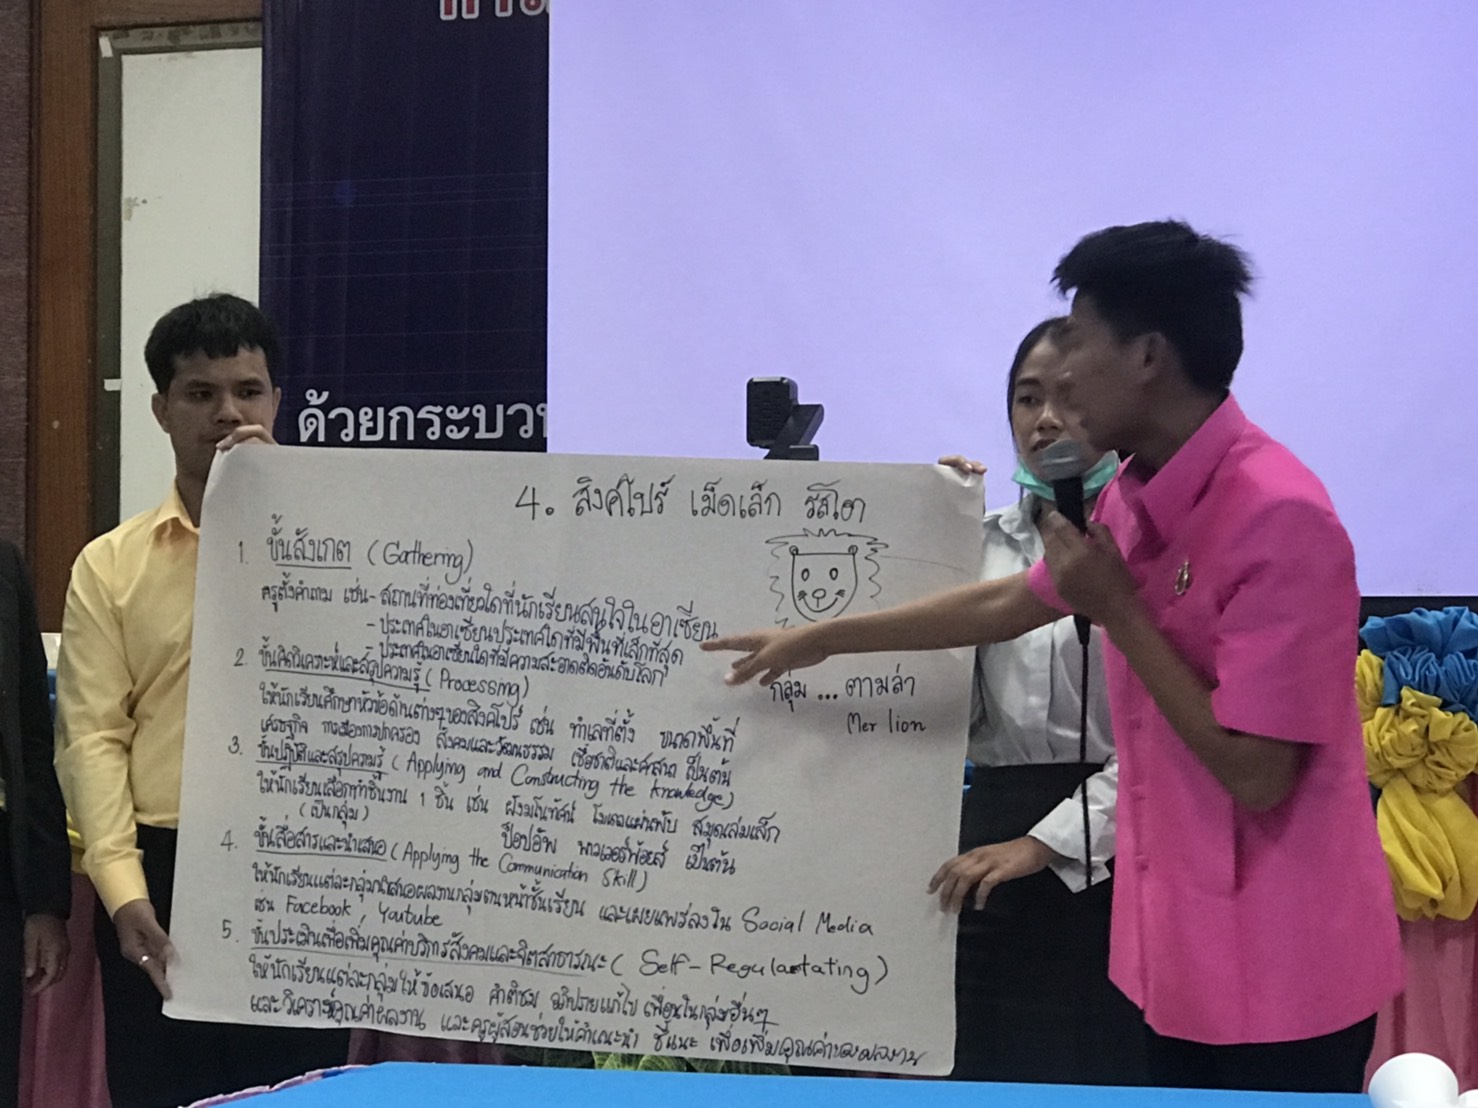 ด้วยกระบวน
4. สิงคโปร์ เม็ดเล็ก รัสโต
1. ขั้นสังเกต (Gathering)
ครูตั้งคำถาม เช่น - สถานที่ท่องเที่ยวใดที่นักเรียนสนใจในอาเซียน
- ประเทศในอาเซียนประเทศใดที่มีพื้นที่เล็กที่สุด
- ประเทศในอาเซียนใดที่มีความสะอาดติดอันดับโลก
2. ขั้นคิดวิเคราะห์และสรุปความรู้ (Processing)
ให้นักเรียนศึกษาหัวข้อด้านต่างๆของสิงคโปร์ เช่น ทำเลที่ตั้ง ขนาดพื้นที่
เศรษฐกิจ การเมืองการปกครอง สังคมและวัฒนธรรม เชื้อชาติและศาสนา เป็นต้น
3. ขั้นปฏิบัติและสรุปความรู้ (Applying and Constructing the knowledge)
ให้นักเรียนเลือกทำชิ้นงาน 1 ชิ้น เช่น ผังมโนทัศน์ โมเดลแผ่นพับ สมุดเล่มเล็ก
(เป็นกลุ่ม) ป๊อปอัพ พาวเวอร์พ้อยส์ เป็นต้น
4. ขั้นสื่อสารและนำเสนอ (Applying the Communication Skill)
ให้นักเรียนแต่ละกลุ่มนำเสนอผลงานกลุ่มตนหน้าชั้นเรียน และเผยแพร่ลงใน Social Media
เช่น Facebook Youtube
5. ขั้นประเมินเพื่อเพิ่มคุณค่าบริการสังคมและจิตสาธารณะ (Self-Regulatating)
ให้นักเรียนแต่ละกลุ่มให้ข้อเสนอ คำติชม อภิปรายแก้ไข เพื่อนในกลุ่มอื่นๆ
และวิเคราะห์คุณค่าผลงาน และครูผู้สอนช่วยให้คำแนะนำ ชี้แนะ เพื่อเพิ่มคุณค่าของผลงาน
กลุ่ม ... ตามล่า
Mer lion